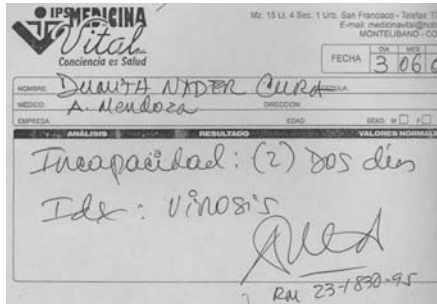 IPS MEDICINA
Vital
Conciencia es Salud
Mz. 15 Lt. 4 Sec. 1 Urb. San Francisco - Telefax: 7
E-mail: medicinavital@hot
MONTELIBANO - CO
FECHA DIA MES
3 06 0
NOMBRE: DUNITH NADER CURA CEDULA:
MÉDICO: A. Mendoza DIRECCION:
EMPRESA: EDAD: SEXO: M F
ANÁLISIS RESULTADO VALORES NORMALE
Incapacidad: (2) Dos dias
Idx: Virosis
RM 23-1830-95